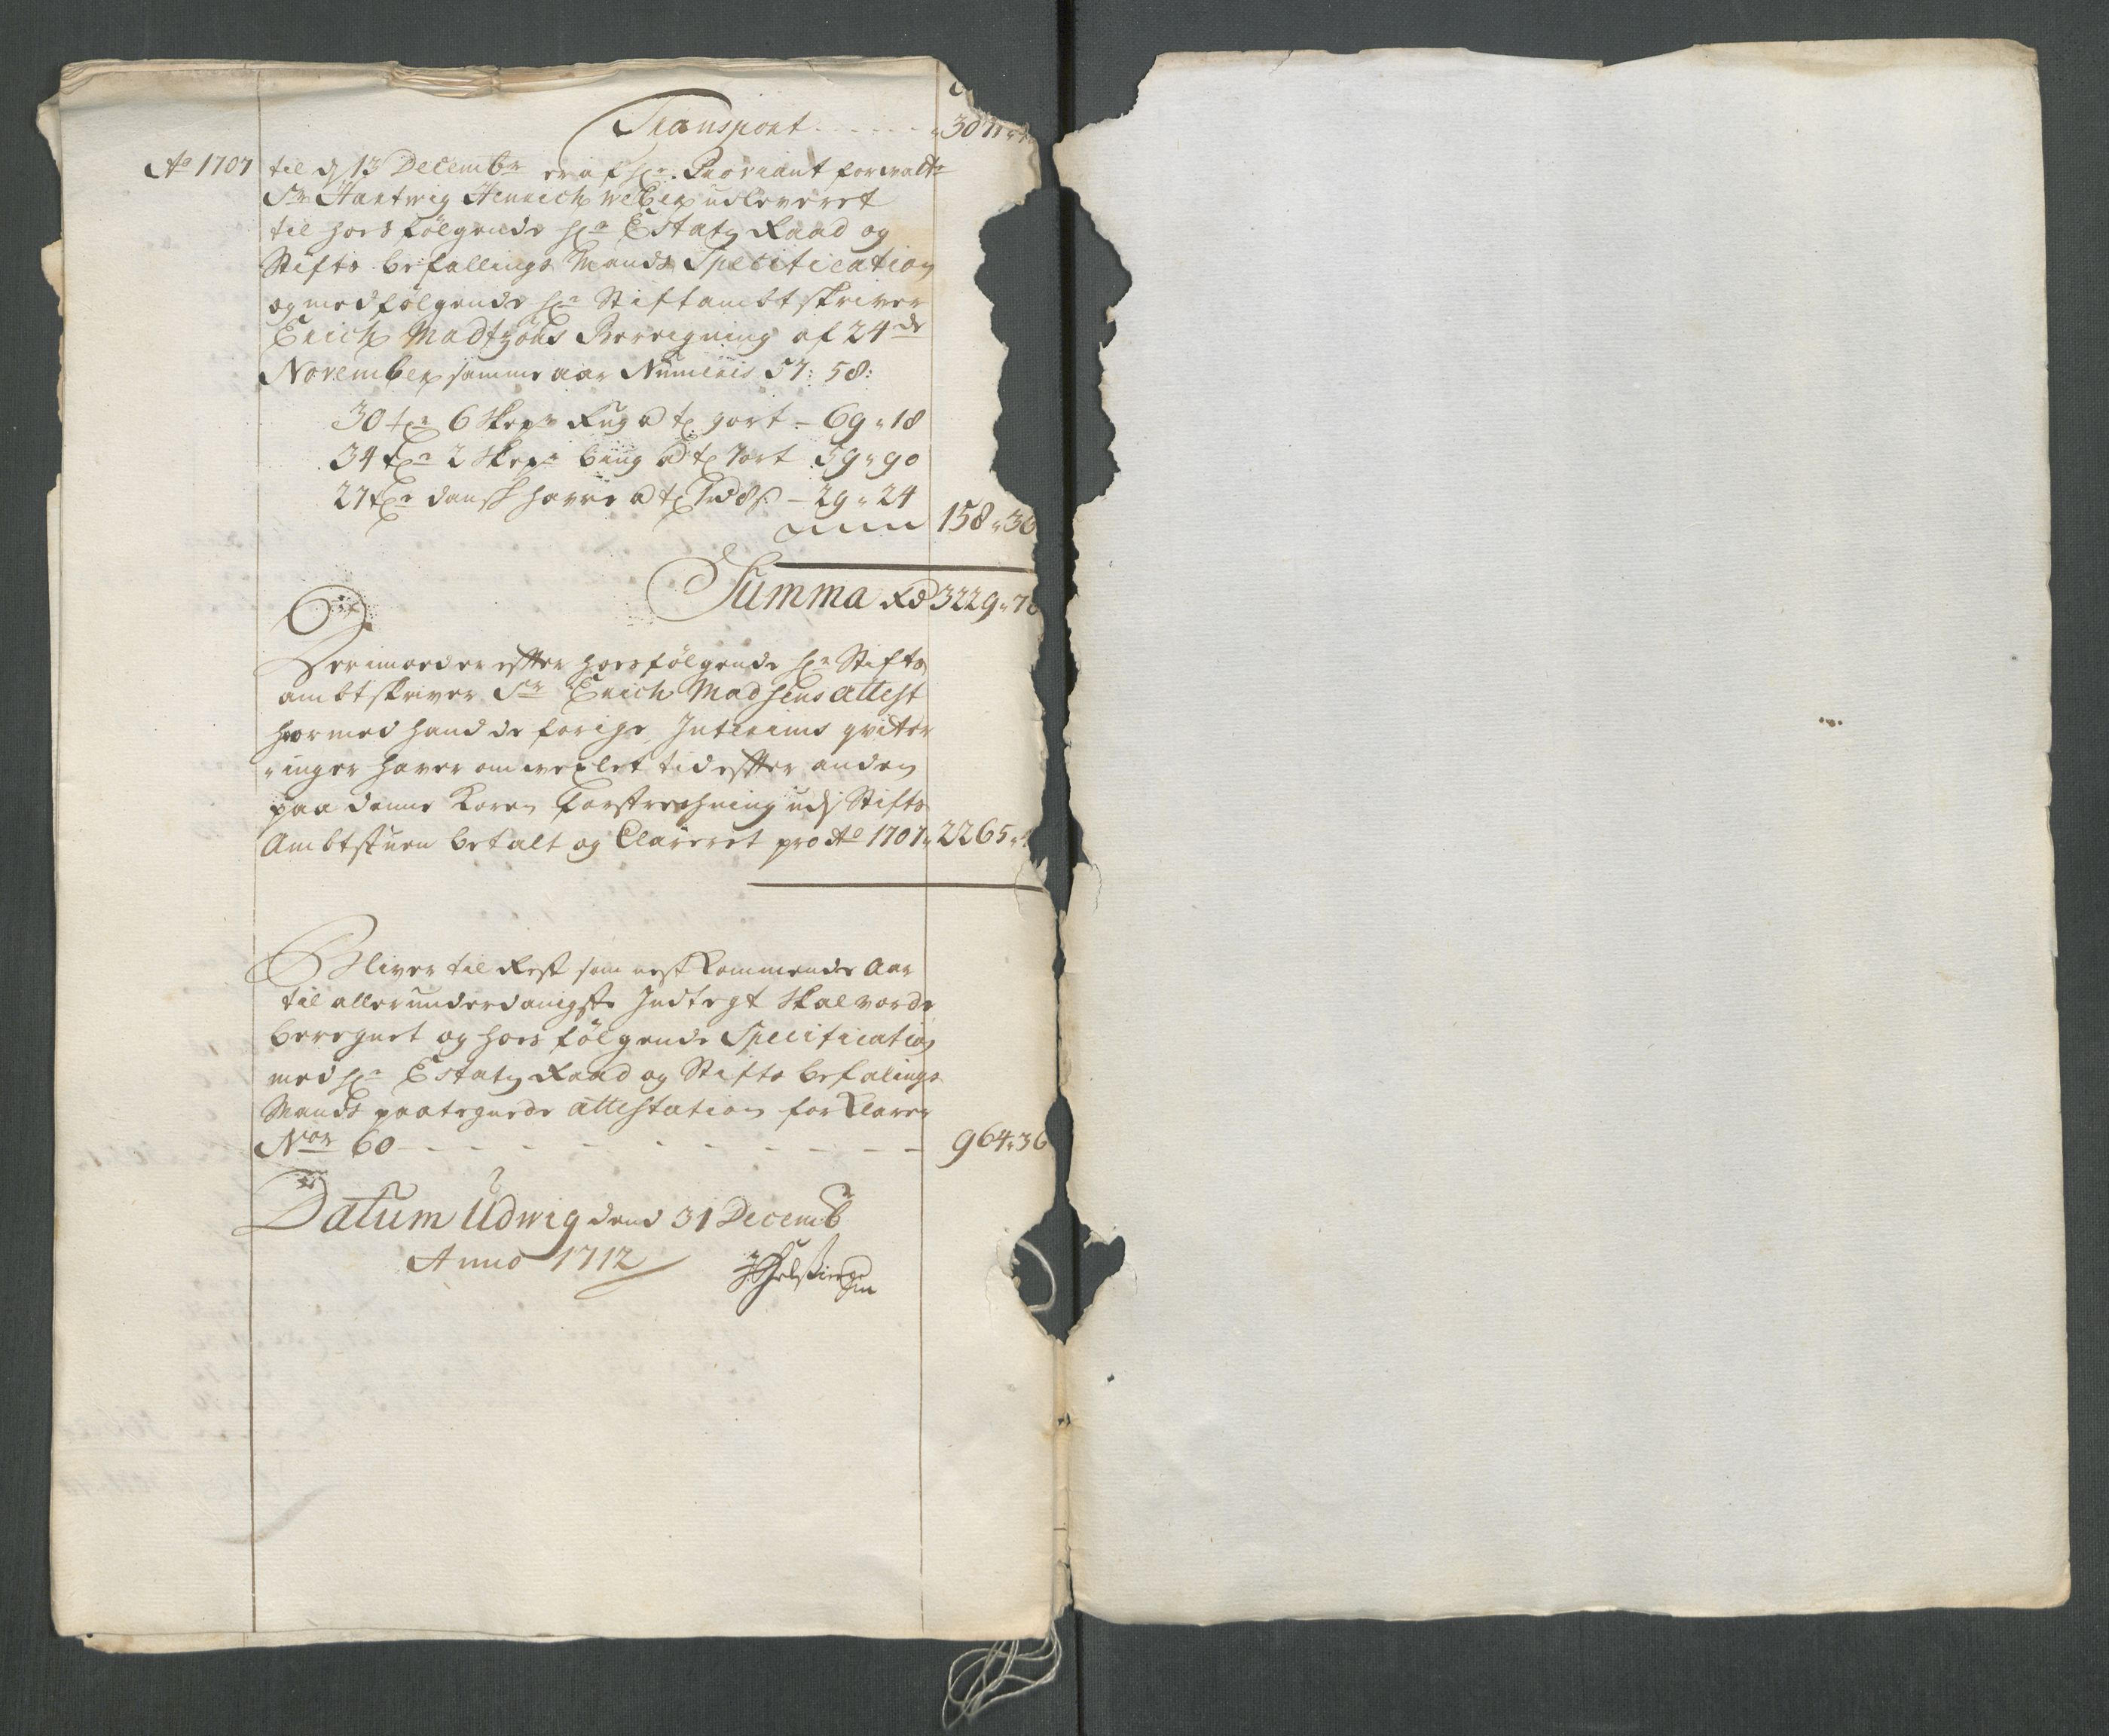 Transport - - - - - 3071
Ao 1707 til d 13 Decembr er af hr. Proviant forvalter
Sr Hartwig Henrich Weber udleveret
til hoesfølgende hr Estatz Raad og
Stifts befallings Mands Specification
og medfølgende hr Stiftambtskriver
Erich Madtzøns Beregning af 24de
November samme aar Numeris 57: 58:
30 tr 6 Skepr Rug a t 9ort - 69 " 18
34 tr 2 Skepr biug a t 7ort 59 " 90
27 tr dansk hafre a t 1rd 8s - 29 " 24
158 " 36
Summa Rd 3229 " 78
Derimod er efter hoesfølgende hr Stifts
ambtskriver Sr Erich Madsens attest
hvormed hand de forige Interims qviter
"inger haver omvexlet tid efter anden
paa denne Koren forstrechning udj Stifts
Ambtstuen betalt og Clareret pro Ao 1707 " 2265
Bliver til Rest som nestkommende Aar
til allerunderdanigste Indtegt skal vorde
beregnet og hoesfølgende Specification
med hr Estatz Raad og Stifts befalings
Mands paategnede attestation forklarer
Nor 60 - - - - - - - - - 964 " 36
Datum Udwig dend 31 Decembr
Anno 1712